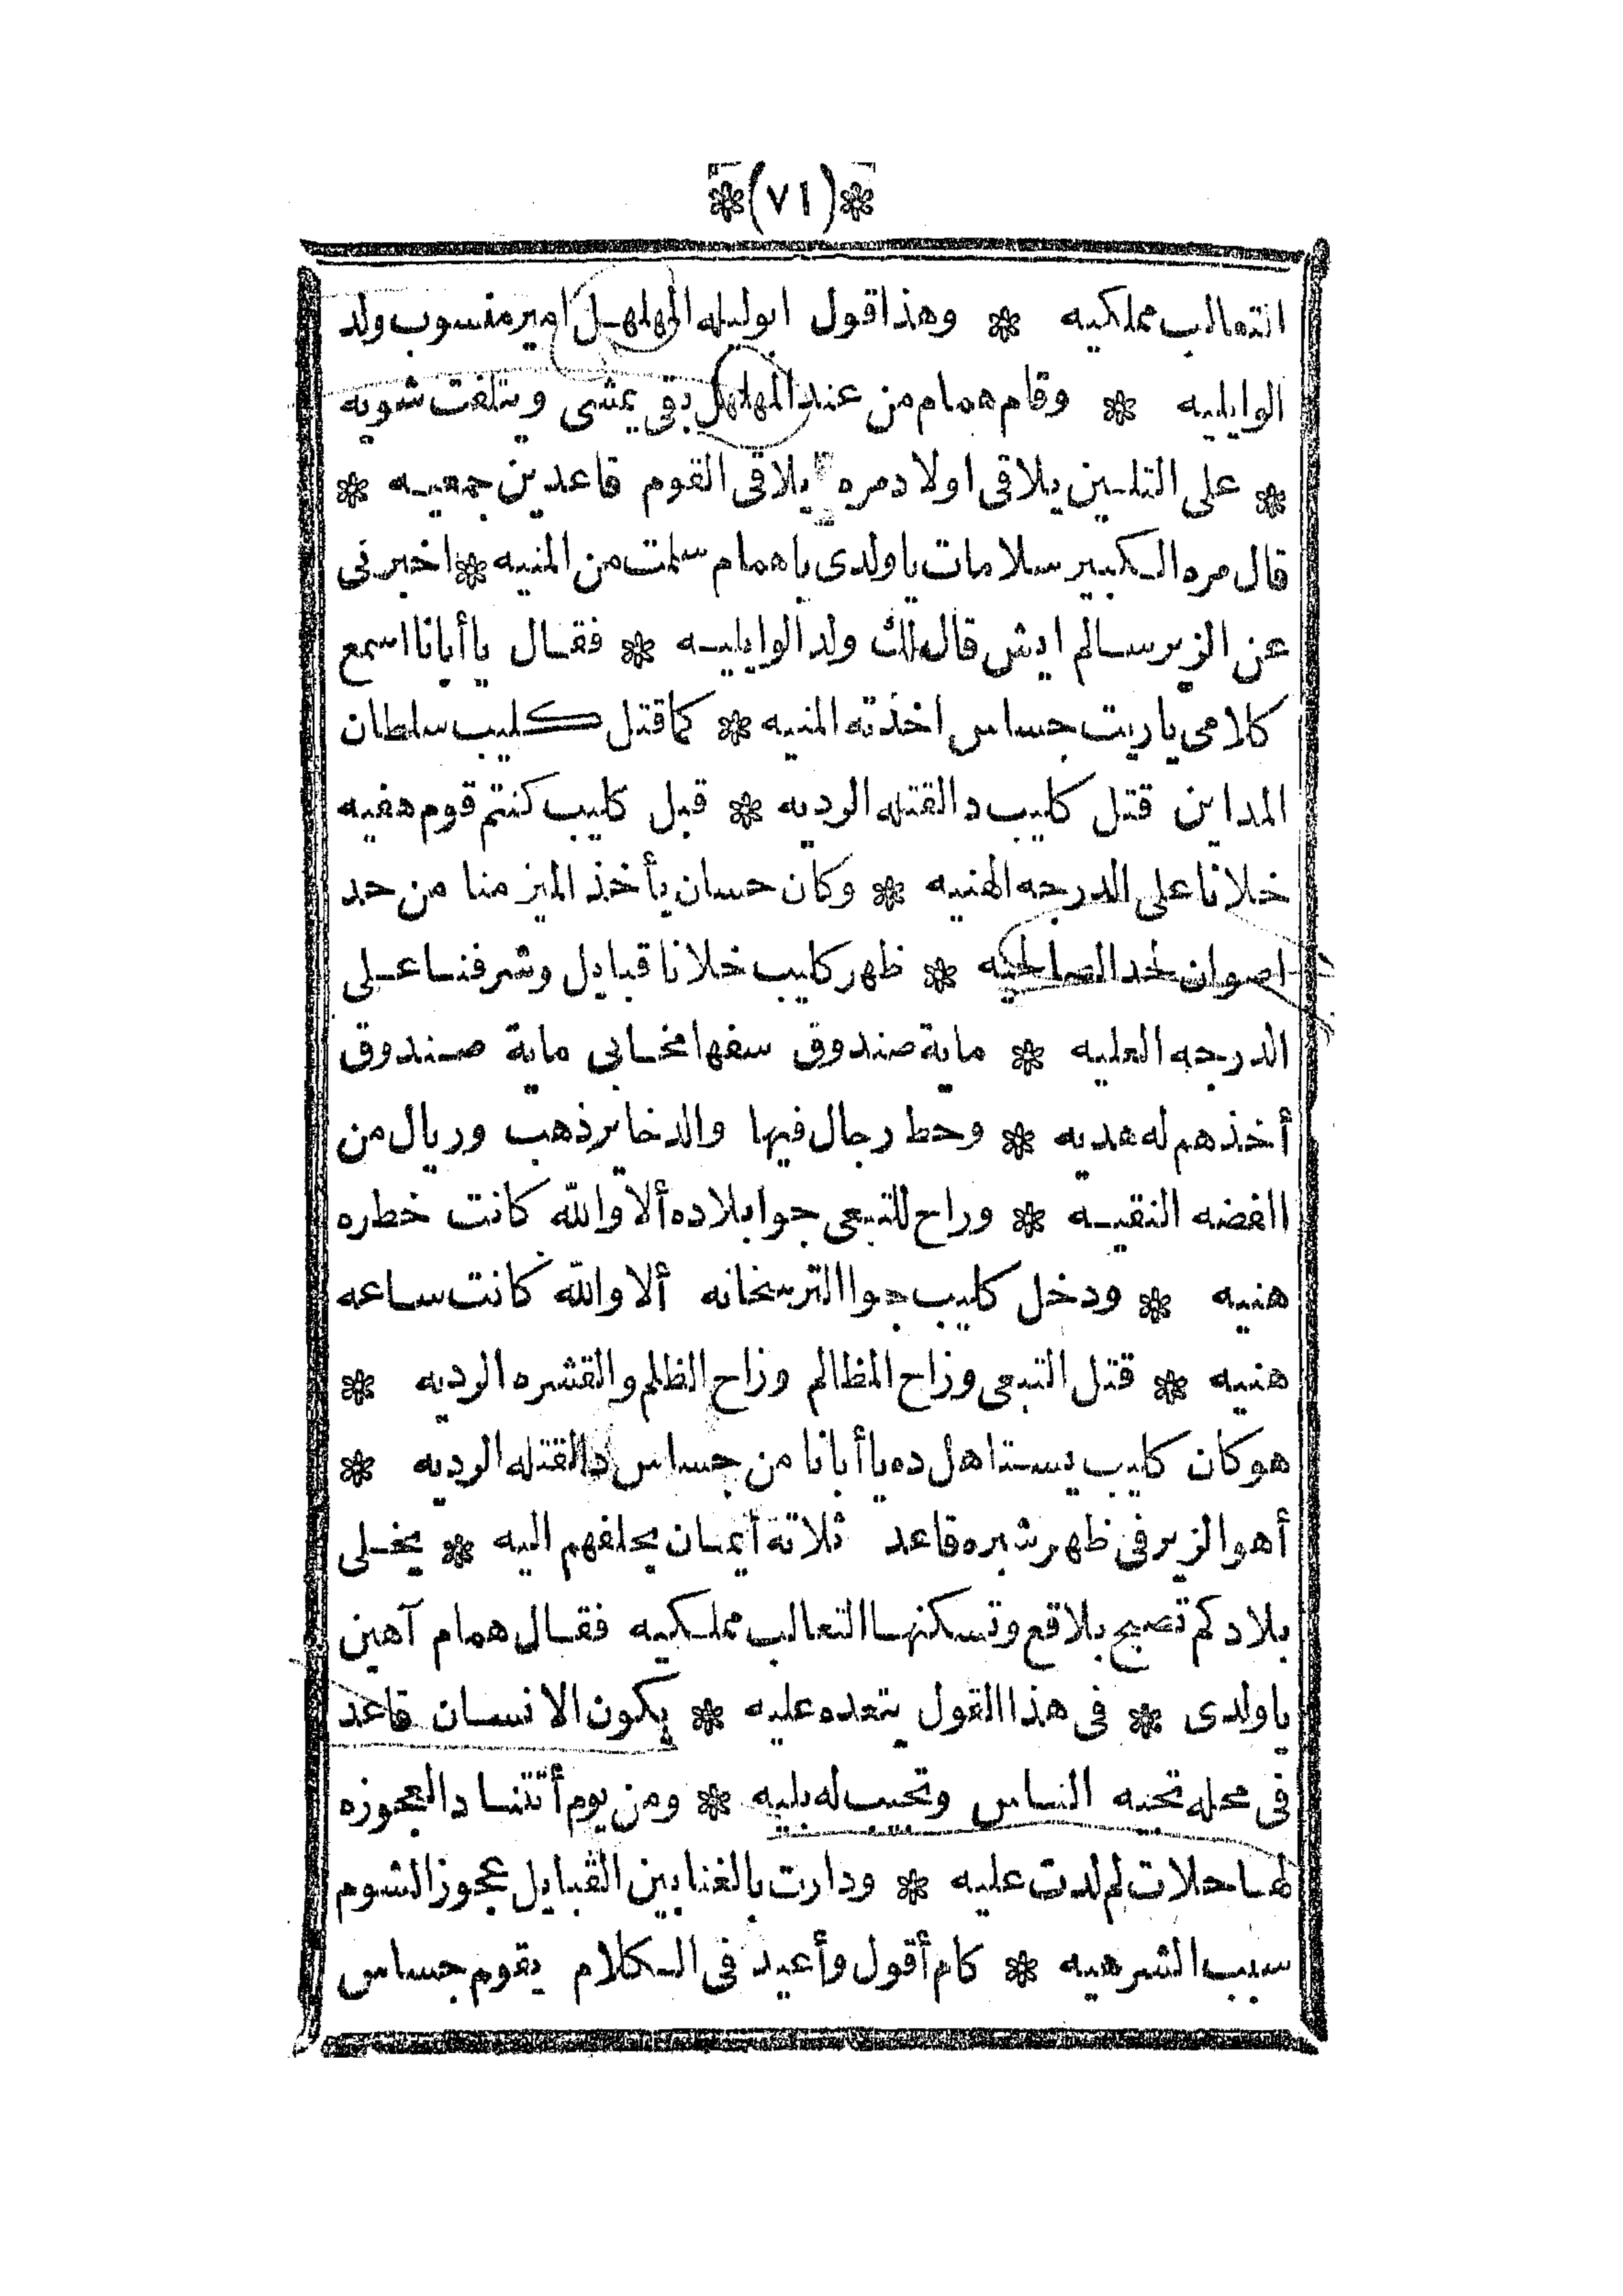 ❊(٧١)❊
التعالب مملكيه ❊ وهذا قول ابوليله المهلهل امير منسوب ولد
الوايليه ❊ وقام همام من عند المهلهل بقى يمشى ويتلفت شويه
❊ على التلين يلاقى اولادمره يلاقى القوم قاعدين جمعيه ❊
قال مره الكبير سلامات ياولدى ياهمام سلمت من المنيه ❊ اخبرنى
عن الزير سالم ايش قال لك ولد الوايليه ❊ فقال ياأبانا اسمع
كلامى ياريت جساس اخذته المنيه ❊ كما قتل كليب سلطان
المداين قتل كليب دالقتله الرديه ❊ قبل كليب كنتم قوم هفيه
خلانا على الدرجه الهنيه ❊ وكان حسان يأخذ الميز منا من حد
اصوان لحد الصالحيه ❊ ظهر كليب خلانا قبايل وشرفنا على
الدرجه العليه ❊ ماية صندوق سفها مخابى ماية صندوق
أخذهم له هديه ❊ وحط رجال فيها والدخاير ذهب وريال من
الفضه النقيه ❊ وراح للتبعى جوا بلاده ألا والله كانت خطره
هنيه ❊ ودخل كليب جوا الترسخانه ألا والله كانت ساعه
هنيه ❊ قتل التبعى وزاح المظالم وزاح الظلم والقشره الرديه ❊
هو كان كليب يستاهل ده ياأبانا من جساس دالقتله الرديه ❊
أهو الزير فى ظهر شبره قاعد ثلاتة أيمان يحلفهم اليه ❊ يخلى
بلادكم تصبح بلاقع وتسكنها التعالب مملكيه فقال همام آهين
ياولدى ❊ فى هذا القول يتعده عليه ❊ يكون الانسان قاعد
فى محله تجيه الناس وتجيب له بليه ❊ ومن يوم أتتنا دالعجوزه
لها حلات لم لدت عليه ❊ ودارت بالغنا بين القبايل عجوز الشوم
سبب الشر هيه ❊ كام أقول وأعيد فى الكلام يقوم جساس